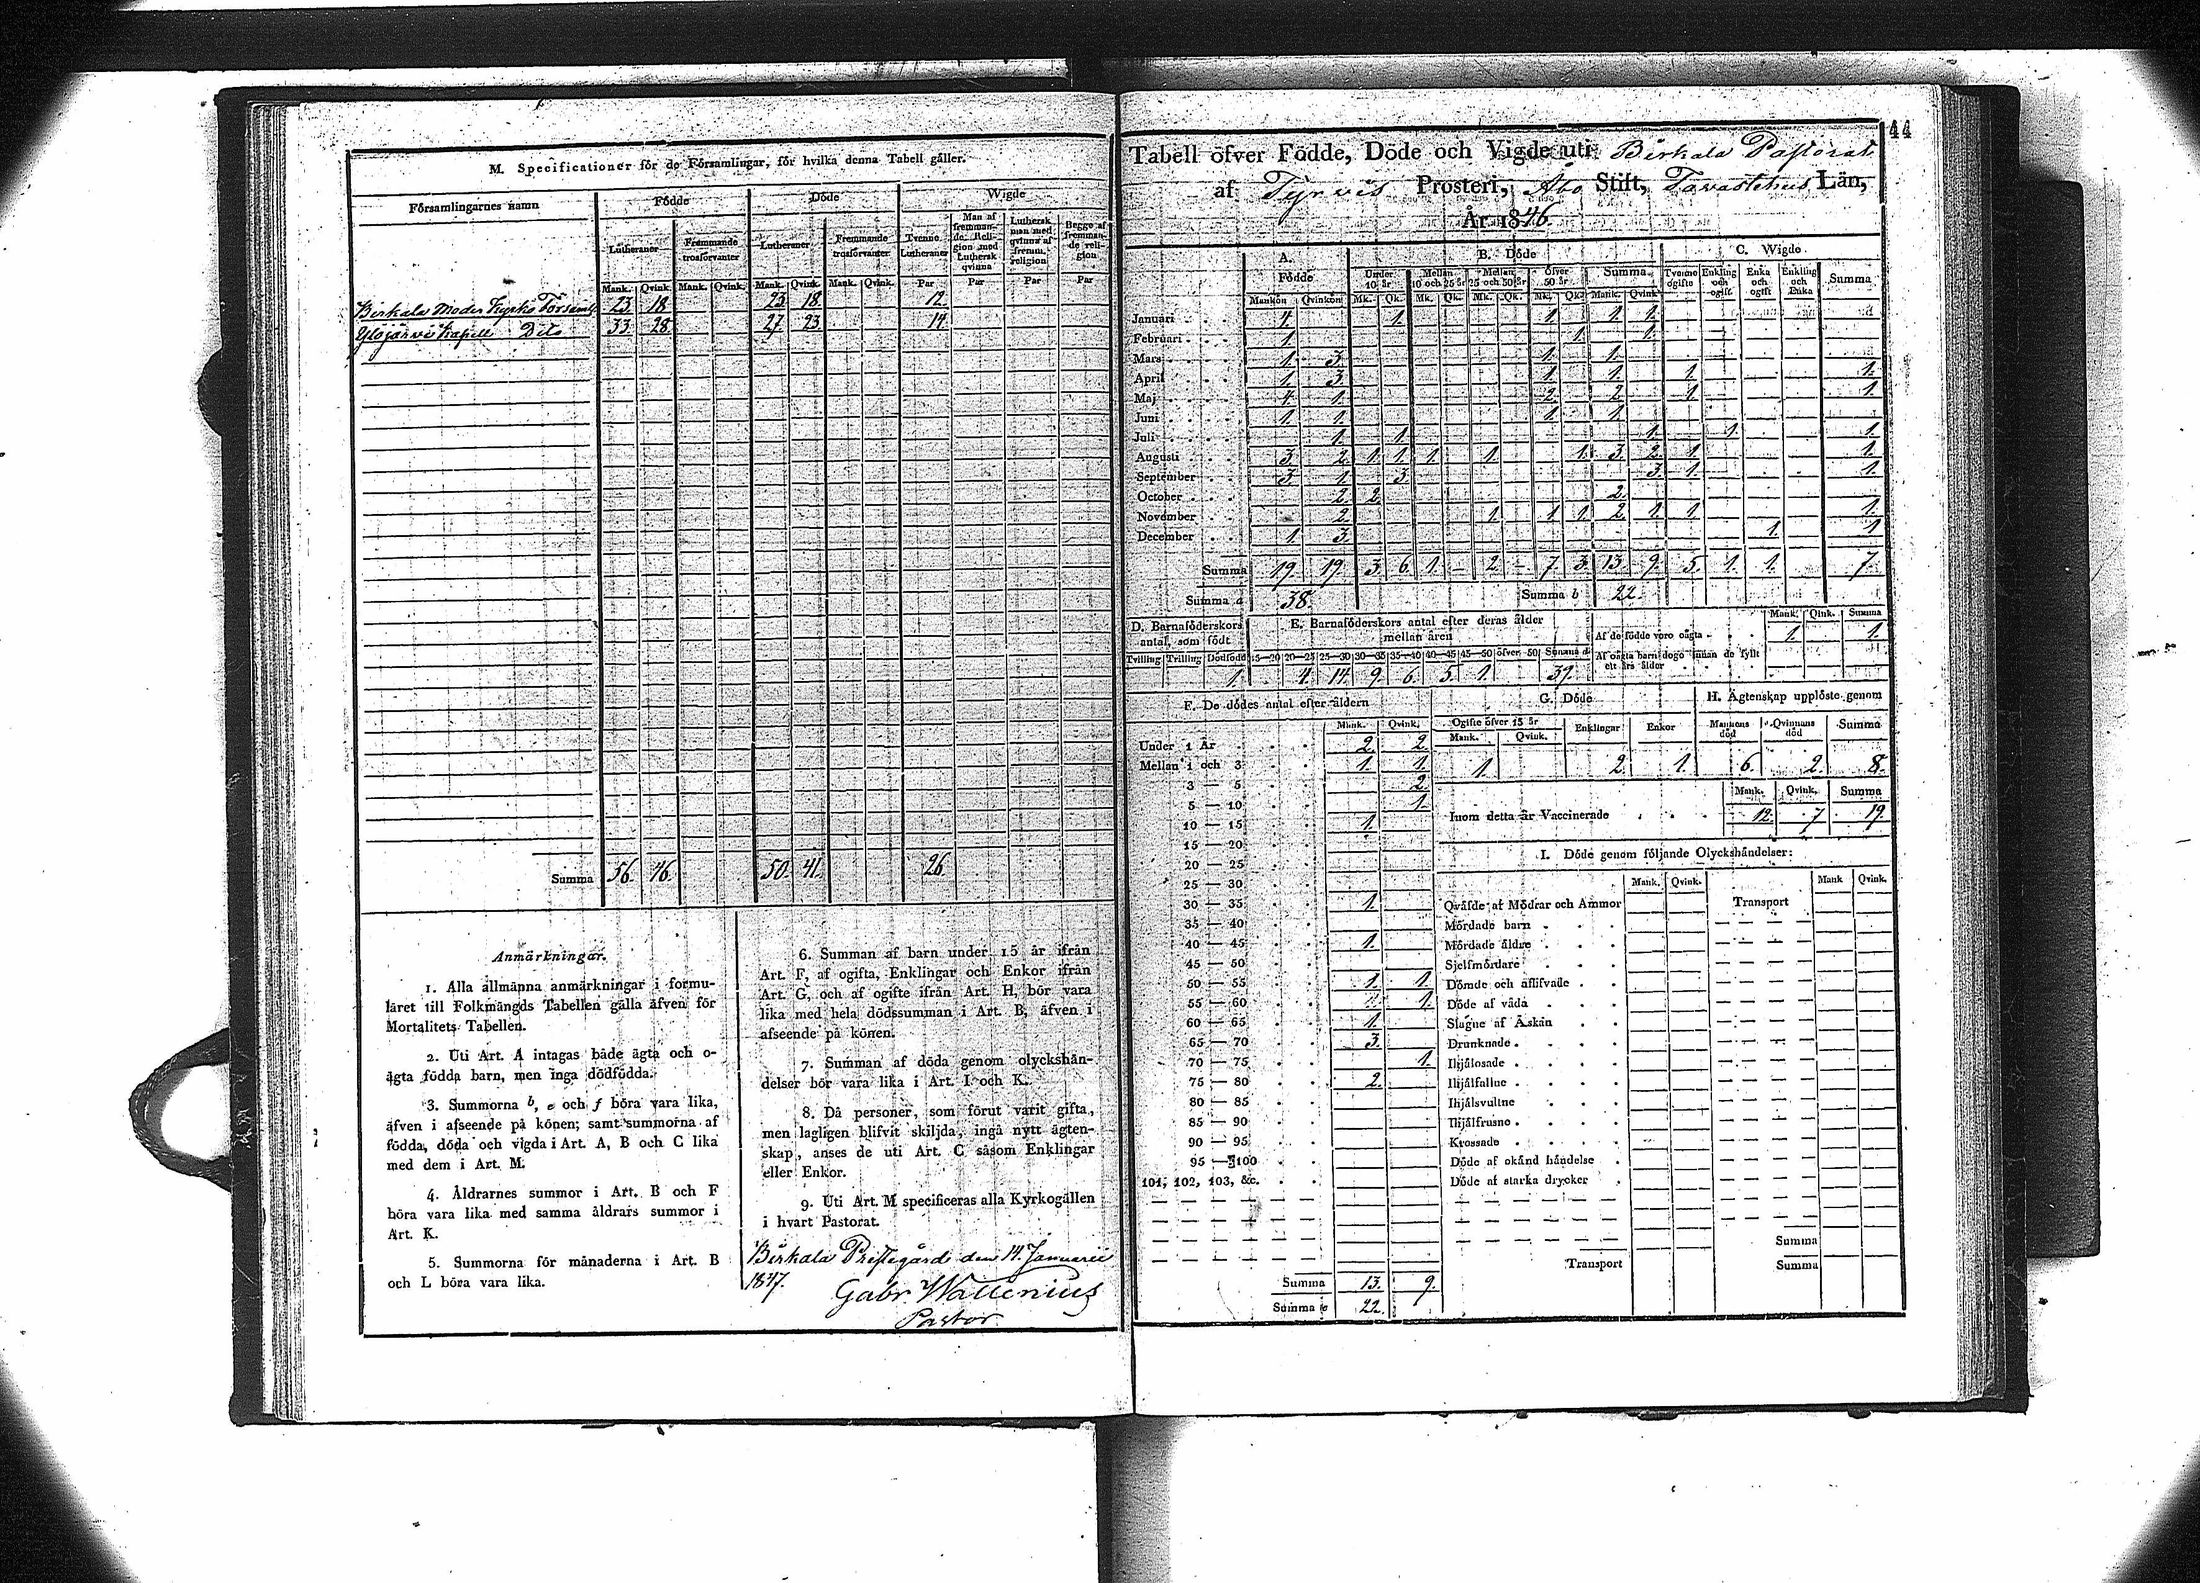 M. Specificationer för de Församlingar, för hvilka denna Tabell gäller.
Församlingarnes namn Födde Döde Wigde
Lutheraner Fremmande trosförvanter Lutheraner Fremmande trosförvanter Tvenne Lutheraner Man af fremmande Religion med Luthersk qvinna Luthersk man med qvinna af fremm. religion Begge af fremmande religion
Mank. Qvink. Mank. Qvink. Mank. Qvink. Mank. Qvink. Par Par Par Par
Birkala Moder Kyrko Församl. 23. 18. 23. 18. 12.
Ylöjärvi Kapell Dito 33. 28. 27. 23. 14.
Summa 56. 46. 50. 41. 26.
Anmärkningar.
1. Alla allmänna anmärkningar i formu-
läret till Folkmängds Tabellen gälla äfven för
Mortalitets Tabellen.
2. Uti Art. A intagas både ägta och o-
ägta födda barn, men inga dödfödda.
3. Summorna b, e och f böra vara lika,
äfven i afseende på könen; samt summorna af
födda, döda och vigda i Art. A, B och C lika
med dem i Art. M.
4. Åldrarnes summor i Art. B och F
böra vara lika med samma åldrars summor i
Art. K.
5. Summorna för månaderna i Art. B
och L böra vara lika.
6. Summan af barn under 15 år ifrån
Art. F, af ogifta, Enklingar och Enkor ifrån
Art. G, och af ogifte ifrån Art. H, bör vara
lika med hela dödssumman i Art. B, äfven i
afseende på könen.
7. Summan af döda genom olyckshän-
delser bör vara lika i Art. I och K.
8. Då personer, som förut varit gifta,
men lagligen blifvit skiljda, ingå nytt ägten-
skap, anses de uti Art. C såsom Enklingar
eller Enkor.
9. Uti Art. M specificeras alla Kyrkogällen
i hvart Pastorat.
Birkala Prestegård den 14. Januarii
1847.
Gabr. Wallenius
Pastor
44
Tabell öfver Födde, Döde och Vigde uti Birkala Pastorat
af Tyrvis Prosteri, Åbo Stift, Tavastehus Län,
År 1846
A. Födde B. Döde C. Wigde
Under 10 år Mellan 10 och 25 år Mellan 25 och 50 år Öfver 50 år Summa Tvenne ogifte Enkling och ogift Enka och ogift Enkling och Enka Summa
Mankön Qvinkön Mk. Qk. Mk. Qk. Mk. Qk. Mk. Qk. Mank. Qvink.
Januari 4. 1. 1. 1. 1.
Februari 1. 1. 1.
Mars 1. 3. 1. 1.
April 1. 3. 1. 1. 1. 1.
Maj 4. 1. 2. 2. 1. 1.
Juni 1. 1. 1. 1.
Juli 1. 1. 1. 1. 1.
Augusti 3. 2. 1. 1. 1. 1. 1. 3. 2. 1. 1.
September 3. 1. 3. 3. 1. 1.
October 2. 2. 2.
November 2. 1. 1. 1. 2. 1. 1. 1.
December 1. 3. 1. 1.
Summa 19. 19. 3. 6. 1. – 2. – 7. 3. 13. 9. 5. 1. 1. 7.
Summa a 38. Summa b 22.
D. Barnaföderskors antal, som födt
Tvilling Trilling Dödfödd
1.
E. Barnaföderskors antal efter deras ålder mellan åren
15—20 20—25 25—30 30—35 35—40 40—45 45—50 öfver 50 Summa d
4. 14. 9. 6. 5. 1. 39.
Mank. Qink. Summa
Af de födde voro oägta 1. 1.
Af oägta barn dogo innan de fyllt ett års ålder
F. De dödes antal efter åldern
Mank. Qvink.
Under 1 År 2. 2.
Mellan 1 och 3 1. 1.
3 — 5 2.
5 — 10 1.
10 — 15 1.
15 — 20
20 — 25
25 — 30
30 — 35 1.
35 — 40
40 — 45 1.
45 — 50
50 — 55 1. 1.
55 — 60 1.
60 — 65 1.
65 — 70 3.
70 — 75 1.
75 — 80 2.
80 — 85
85 — 90
90 — 95
95 — 100
101, 102, 103, &c.
Summa 13. 9.
Summa e 22.
G. Döde
Ogifte öfver 15 år Enklingar Enkor
Mank. Qvink.
1. 2. 1.
H. Ägtenskap upplöste genom
Mannens död Qvinnans död Summa
6. 2. 8.
Mank. Qvink. Summa
Inom detta år Vaccinerade 12. 7 19.
I. Döde genom följande Olyckshändelser:
Mank. Qvink. Mank Qvink.
Qväfde af Mödrar och Ammor Transport
Mördade barn
Mördade äldre
Sjelfmördare
Dömde och aflifvade
Döde af våda
Slagne af Åskan
Drunknade
Ihjälosade
Ihjälfallne
Ihjälsvultne
Ihjälfrusne
Krossade
Döde af okänd händelse
Döde af starka drycker
Summa
Transport Summa